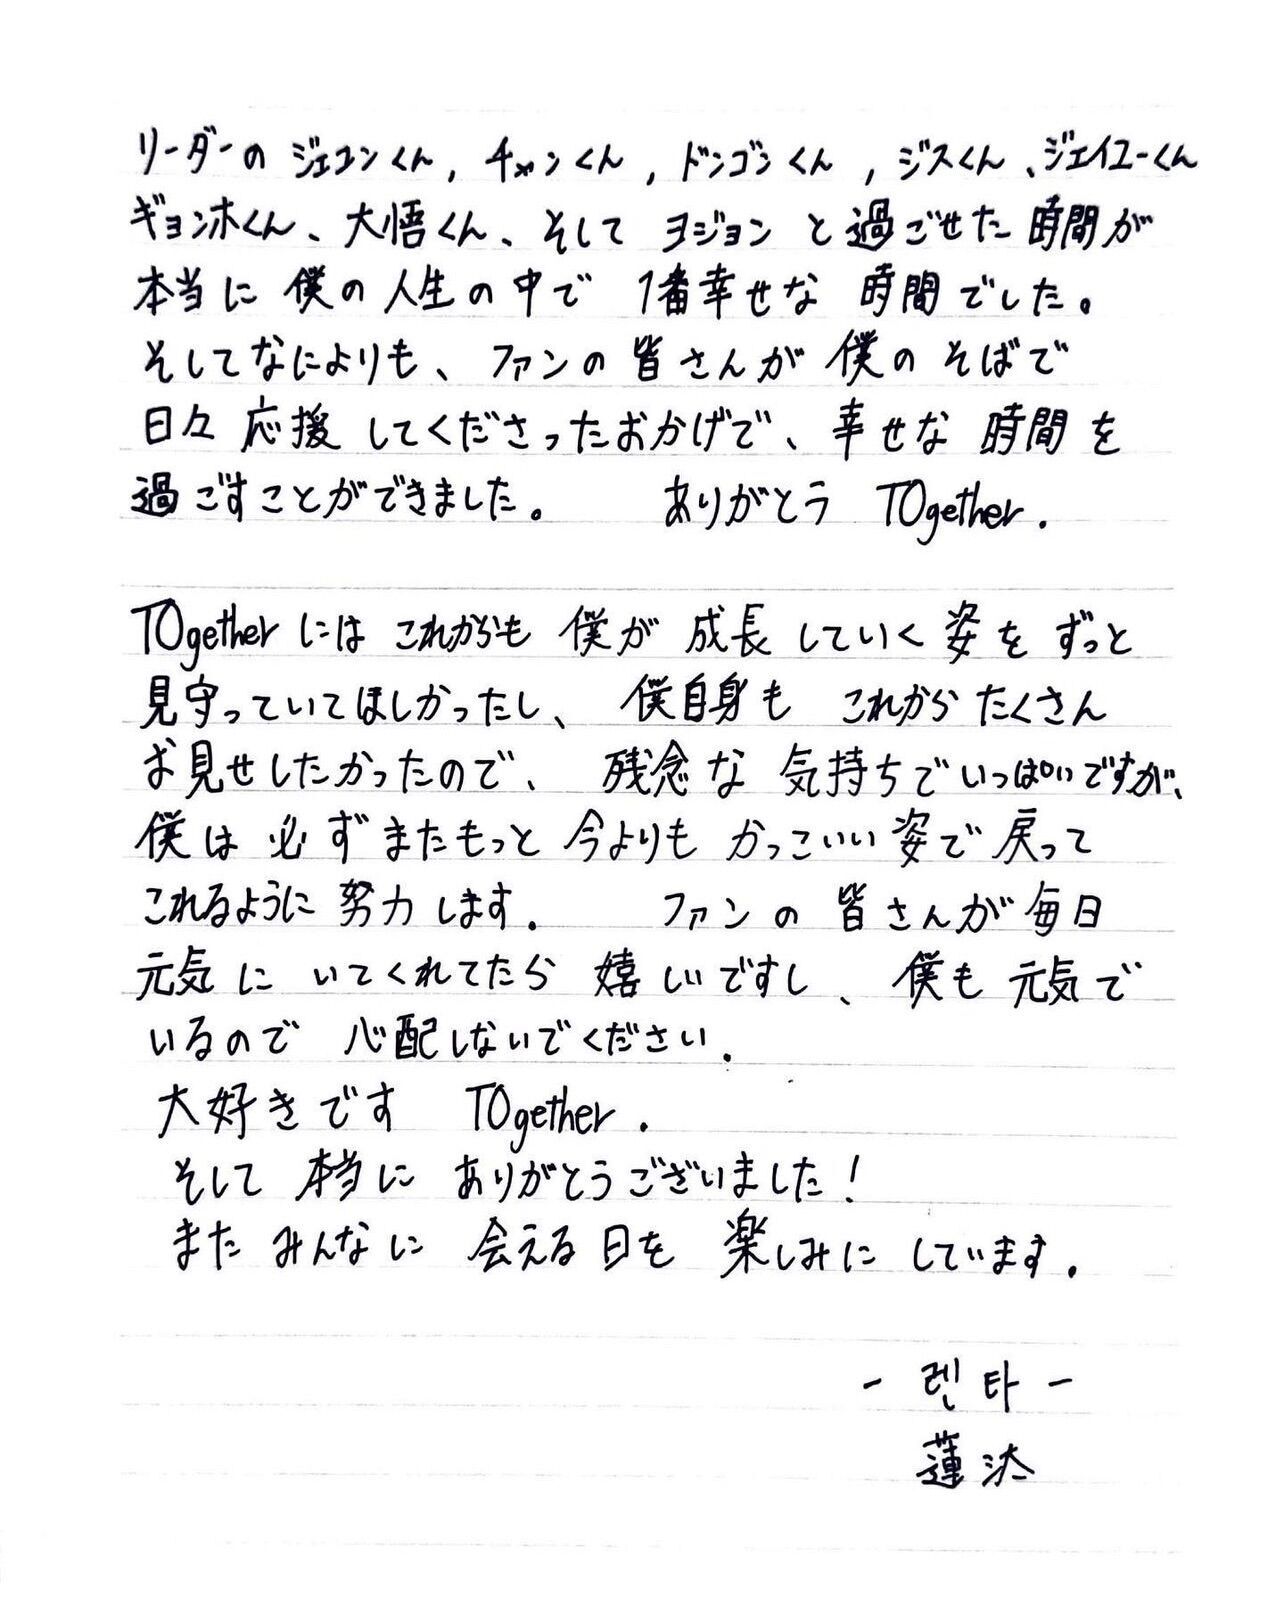 リーダーの ジェユンくん, チャンくん, ドンゴンくん, ジスくん、ジェイユーくん
ギョンホくん、大悟くん、そして ヨジョン と過ごせた時間が
本当に 僕の人生の中で 1番幸せな 時間でした。
そしてなによりも、ファンの皆さんが 僕のそばで
日々 応援してくださったおかげで、幸せな 時間を
過ごすことができました。 ありがとう TOgether.
TOgether には これからも 僕が 成長していく姿を ずっと
見守っていてほしかったし、 僕自身も これからたくさん
お見せしたかったので、 残念な 気持ちでいっぱいですが、
僕は 必ずまたもっと 今よりも かっこいい姿で戻って
これるように 努力します. ファンの 皆さんが毎日
元気に いてくれてたら 嬉しいですし、僕も 元気で
いるので 心配しないでください.
大好きです TOgether.
そして 本当に ありがとうございました!
また みんなに 会える日を 楽しみに しています.
- 렌타 -
蓮汰